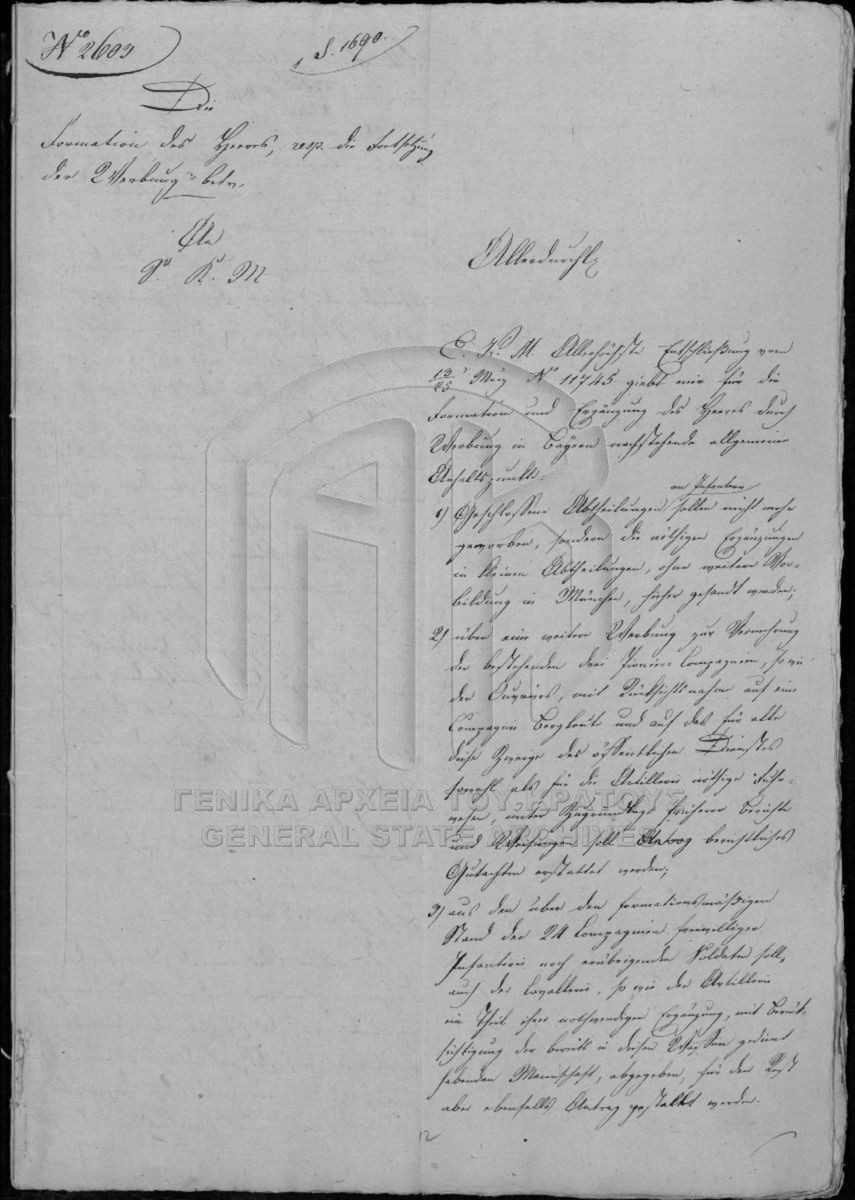 No 2603
S. 1690.
Die
Formation des Heeres, resp. die Fortsetzung
der Werbung betr.
An
Sr. K. M
Allerdurchl.
E. K. M Allerhöchste Entschließung vom
13/25 März No 11745 giebt mir für die
Formation und Ergänzung des Heeres durch
Werbung in Bayern nachstehende allgemeine
Anhaltspunkte.
an Infanterie
1) Geschlossene Abtheilungen sollen nicht mehr
geworben, sondern die nöthigen Ergänzungen
in kleinen Abtheilungen, ohne weitere Vor-
bildung in München, hieher gesandt werden;
2) über eine weitere Werbung zur Vermehrung
der bestehenden drei Pionier Compagnien, so wie
der Ouvriers, mit Rücksichtsnahme auf eine
Compagnie Bergleute und auf das für alle
diese Zweige des öffentlichen Dienstes
sowohl als für die Artillerie nöthige Fuhr-
wesen, unter Zugrundlage früherer Berichte
und Weisungen soll berichtliches
Gutachten erstattet werden;
3) aus den über den formationsmäßigen
Stand der 24 Compagnien freiwilliger
Infanterie noch erübrigenden Soldaten soll,
auch der Cavallerie, so wie der Artillerie
ein Theil ihrer nothwendigen Ergänzung, mit Berück-
sichtigung der bereits in diesen Waffen gedient
habenden Mannschaft, abgegeben, für den Rest
aber ebenfalls Antrag gestellt werden.
12
ΓΕΝΙΚΑ ΑΡΧΕΙΑ ΤΟΥ ΚΡΑΤΟΥΣ
GENERAL STATE ARCHIVES